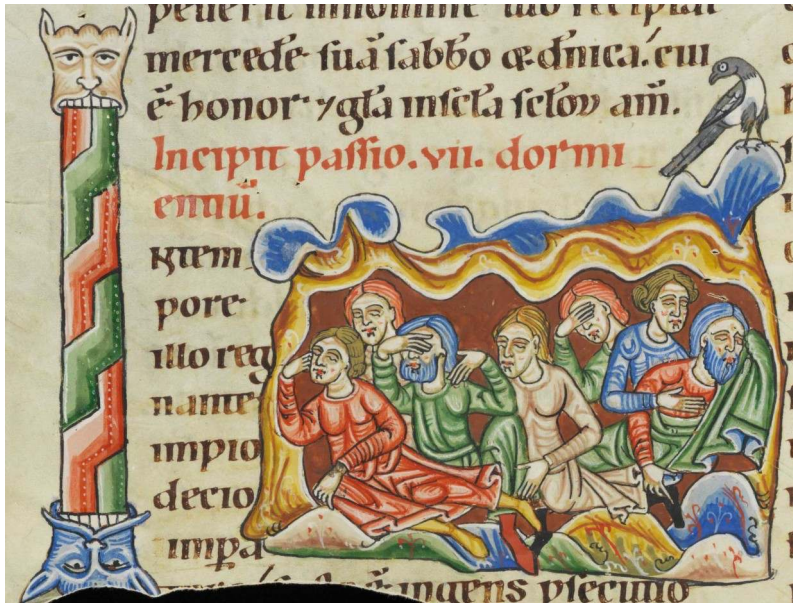 mercedē suā sabbo & dñica. cui
ē honor ⁊ gła inscła scłoꝝ am̄.
Incipit passio. vii. dormi
entiū.
INtem
pore
illo reg
nante
impio
decio
impa
ingens ꝑsecutio